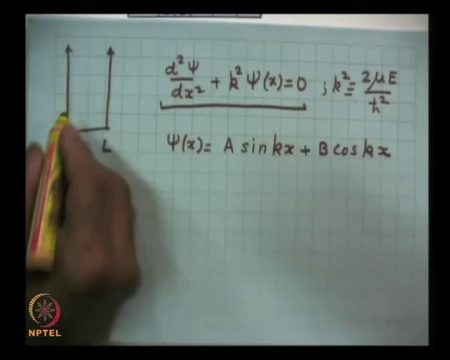 d²Ψ/dx² + k² Ψ(x) = 0 ; k² ≡ 2μE/ħ²
L
Ψ(x) = A sin kx + B cos kx
NPTEL